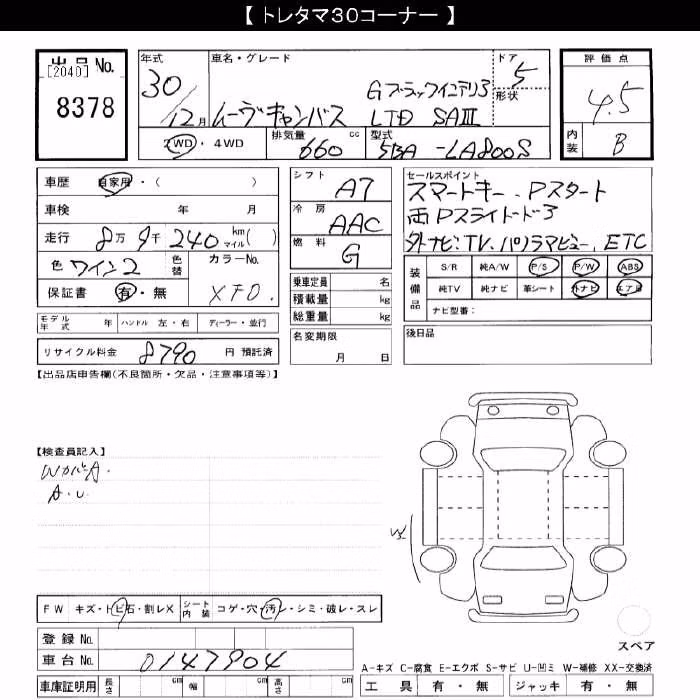 【 トレタマ30コーナー 】
出品 No.
[2040]
8378
年式
30
12月
車名・グレード
Gブラックインテリア
ムーヴキャンバス LTD SAⅢ
ドア
5
形状
2WD ・ 4WD
排気量
660 cc
型式
5BA -LA800S
評価点
4.5
内装
B
車歴 自家用・( )
車検 年 月
走行 8万 9千 240 km マイル( )
色 ワイン2 色替 カラーNo.
保証書 有・無 XF0.
モデル年式 年 ハンドル 左・右 ディーラー・並行
リサイクル料金 8790 円 預託済
シフト A7
冷房 AAC
燃料 G
乗車定員 名
積載量 kg
総重量 kg
名変期限
月 日
セールスポイント
スマートキー、Pスタート
両Pスライドドア
外ナビ:TV、パノラマビュー、ETC
装備品
S/R 純A/W P/S P/W ABS
純TV 純ナビ 革シート 外ナビ エアB
ナビ型番:
後日品
【出品店申告欄(不良箇所・欠品・注意事項等)】
【検査員記入】
A.U.
W
FW キズ・トビ石・割レX シート内装 コゲ・穴・汚レ・シミ・破レ・スレ
登録 No.
車台 No. 0147904
車庫証明用 長さ cm 幅 cm 高さ cm
スペア
A-キズ C-腐食 E-エクボ S-サビ U-凹ミ W-補修 XX-交換済
工具 有・無 ジャッキ 有・無